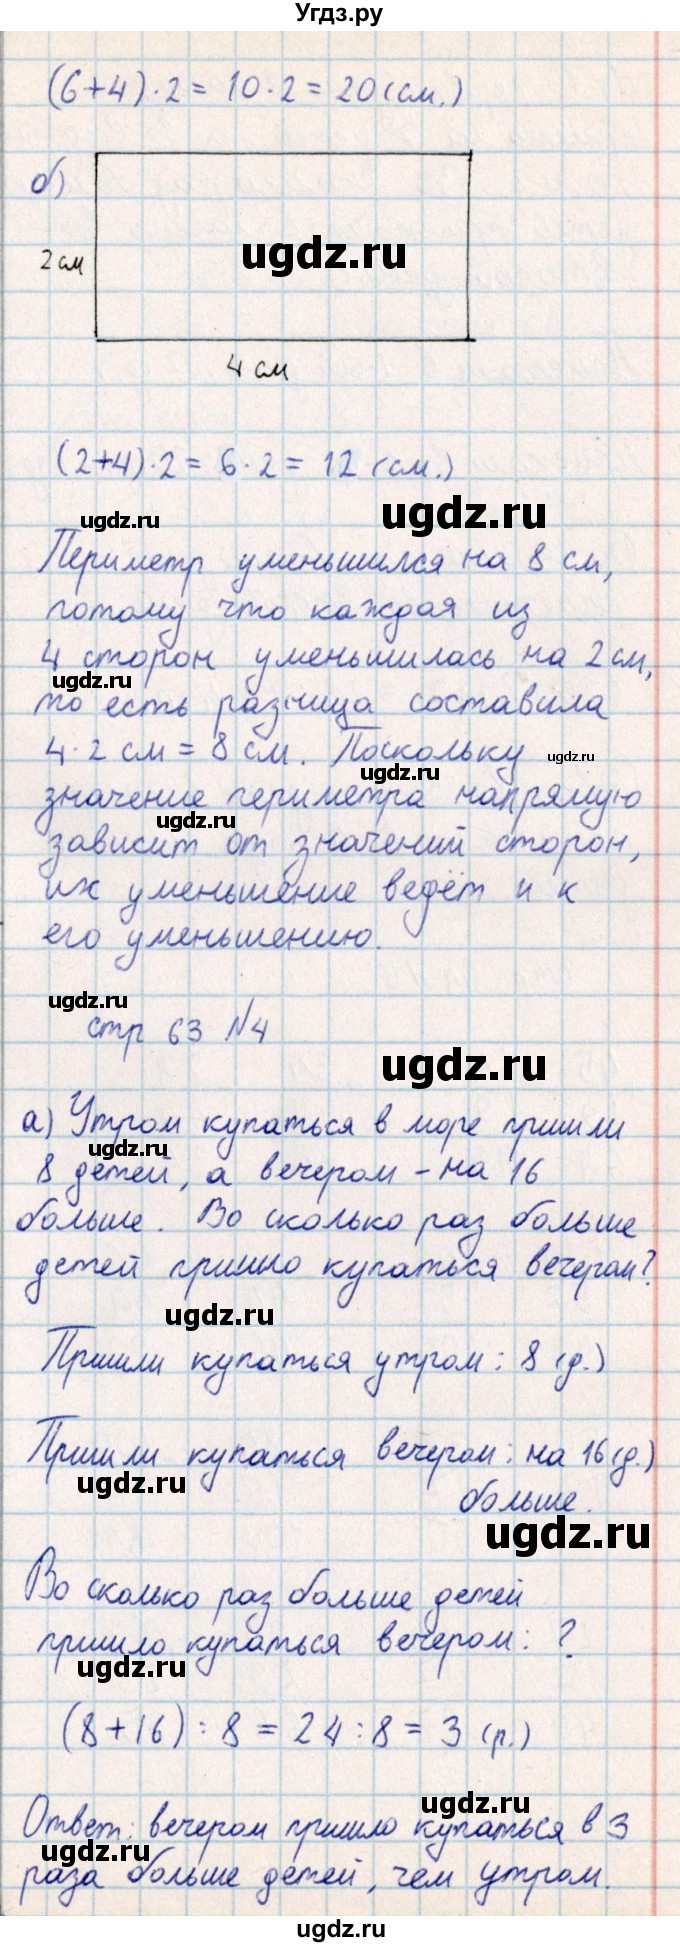 Угдз.ру
(6+4)·2 = 10·2 = 20 (см.)
б)
ugdz.ru
2 см
4 см
(2+4)·2 = 6·2 = 12 (см.)
ugdz.ru
ugdz.ru
Периметр уменьшился на 8 см,
потому что каждая из
4 сторон уменьшилась на 2 см,
ugdz.ru
то есть разница составила
4·2 см = 8 см. Поскольку
ugdz.ru
ugdz.ru
значение периметра напрямую
ugdz.ru
зависит от значений сторон,
их уменьшение ведёт и к
его уменьшению.
ugdz.ru
стр 63 №4
ugdz.ru
а) Утром купаться в море пришли
ugdz.ru
8 детей, а вечером – на 16
больше. Во сколько раз больше
детей пришло купаться вечером?
ugdz.ru
Пришли купаться утром: 8 (д.)
Пришли купаться вечером: на 16 (д.)
ugdz.ru
больше.
ugdz.ru
Во сколько раз больше детей
пришло купаться вечером: ?
ugdz.ru
(8+16) : 8 = 24 : 8 = 3 (р.)
ugdz.ru
Ответ: вечером пришло купаться в 3
ugdz.ru
раза больше детей, чем утром.
ugdz.ru